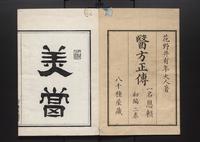 花野井有年大人著
醫方正傳
一名恩頼
初編二卷
八千種屋蔵
美